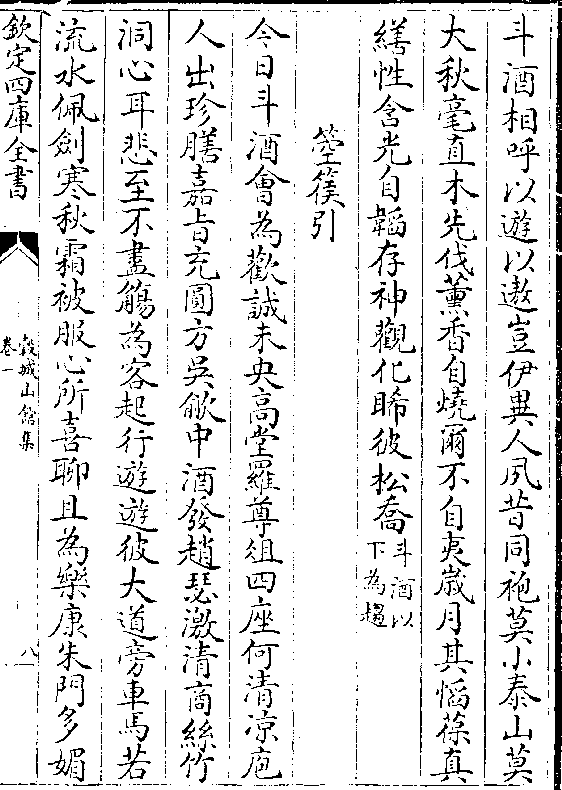 斗酒相呼以遊以遨豈伊異人夙昔同袍莫小泰山莫
大秋毫直木先伐薰香自燒爾不自夷歳月其慆葆真
繕性含光自韜存神觀化睎彼松喬斗酒以
下為趨
箜篌引
今日斗酒會為歡誠未央高堂羅尊俎四座何清凉庖
人出珍膳嘉旨充圓方吳歈中酒發趙瑟激清商絲竹
洞心耳悲至不盡觴為客起行遊遊彼大道旁車馬若
流水佩劍寒秋霜被服心所喜聊且為樂康朱門多媚
欽定四庫全書
榖城山館集
卷一
八